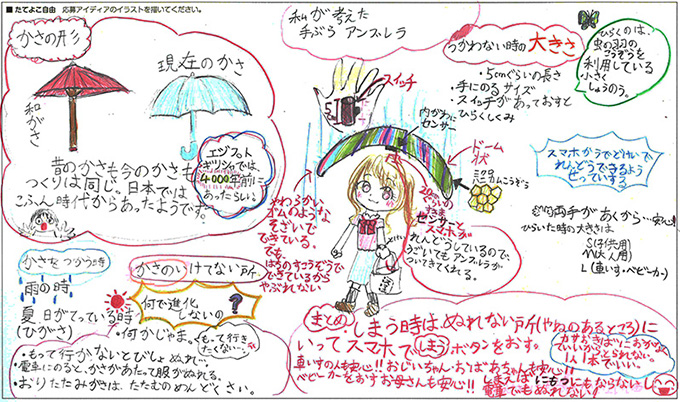 ■たてよこ自由 応募アイディアのイラストを描いてください。
かさの形
和がさ
現在のかさ
昔のかさも今のかさも
つくりは同じ。日本では
こふん時代からあったようです。
エジプト
ギリシャでは
4000年前に
あったらしい。
私が考えた
手ぶら アンブレラ
スイッチ
内がわに
センサー
ドーム
状
ミクロ
ハニカムこうぞう
やわらかい
ゴムのような
そざいで
できている。
でも
はちのすこうぞうで
できているから
やぶれない
センサーと
スマホが
れんどうしているので、
うごいてもアンブレラが
ついてきてくれる。
つかわない時の大きさ
・5cmぐらいの長さ
・手にのるサイズ
・スイッチがあっておすと
ひらくしくみ
ひらくのは、
虫の羽の
こうぞうを
利用している
小さく
しゅうのう。
スマホやうでどけいで
れんどうできるよう
せっていする
両手があくから安心
ひらいた時の大きさは
S(子供用)
M(大人用)
L(車いす・ベビーカー)
かさをつかう時
雨の時
夏 日がでている時
(ひがさ)
かさのいけてない所
何で進化
しないの?
・何かじゃま。
もって行き
たくない…。
・もって行かないとびしょぬれに…
・電車にのると、かさがあたって服がぬれる。
・おりたたみがさは、たたむのめんどくさい。
まとめ しまう時は、ぬれない所(やねのあるところ)に
いってスマホでしまうボタンをおす。
車いすの人も安心!! おじいちゃん・おばあちゃんも安心!!
ベビーカーをおすお母さんも安心!! しまえばにもつにもならないし
電車でもぬれない!
1人1本でいい。